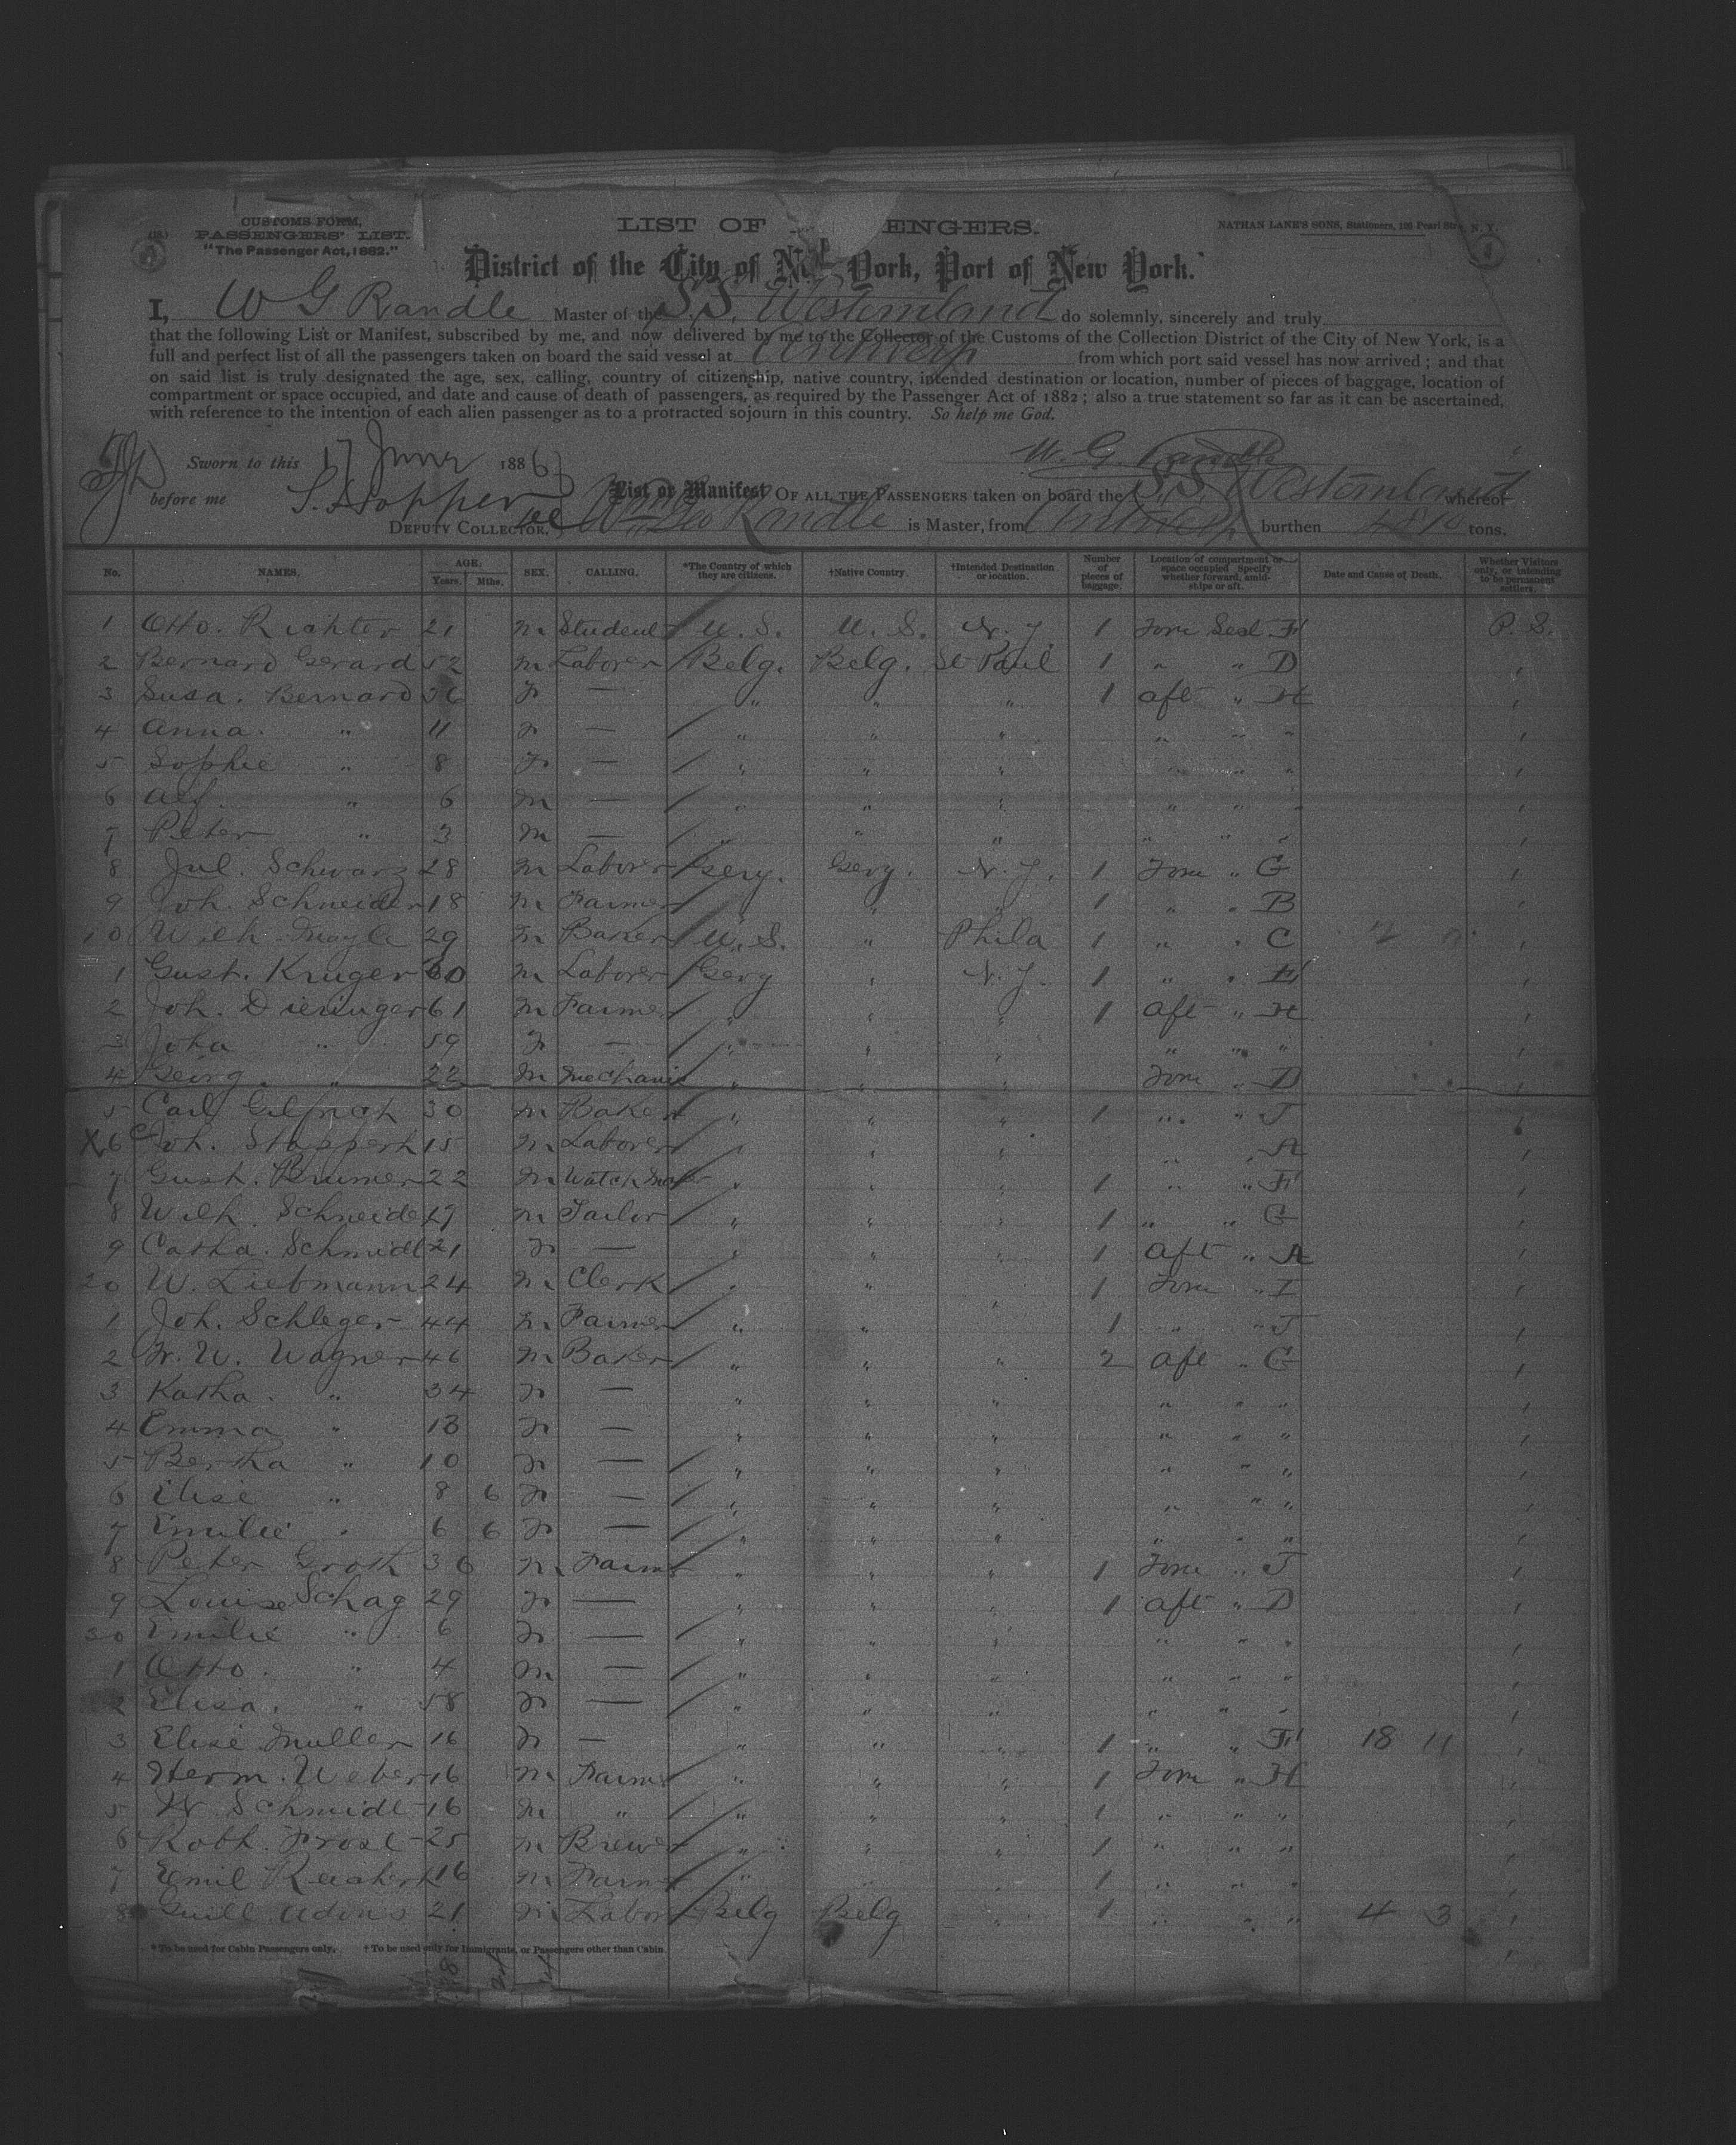 CUSTOMS FORM,
PASSENGERS' LIST.
"The Passenger Act, 1882."
LIST OF ENGERS.
NATHAN LANE'S SONS, Stationers, 106 Pearl Str., N. Y.
District of the City of N York, Port of New York.
I, W G Randle Master of the S.S. Westernland do solemnly, sincerely and truly
that the following List or Manifest, subscribed by me, and now delivered by me to the Collector of the Customs of the Collection District of the City of New York, is a
full and perfect list of all the passengers taken on board the said vessel at Antwerp from which port said vessel has now arrived; and that
on said list is truly designated the age, sex, calling, country of citizenship, native country, intended destination or location, number of pieces of baggage, location of
compartment or space occupied, and date and cause of death of passengers, as required by the Passenger Act of 1882; also a true statement so far as it can be ascertained,
with reference to the intention of each alien passenger as to a protracted sojourn in this country. So help me God.
Sworn to this 17 June 1886 W. G. Randle
before me S. Hopper List or Manifest OF ALL THE PASSENGERS taken on board the S.S. Westernland whereof
DEPUTY COLLECTOR. Randle is Master, from Antwerp burthen tons.
No. NAMES. AGE. Years. Mths. SEX. CALLING. *The Country of which they are citizens. †Native Country. †Intended Destination or location. Number of pieces of baggage. Location of compartment or space occupied Specify whether forward, amidships or aft. Date and Cause of Death. Whether Visitors only, or intending to be permanent settlers.
1 Otto. Richter 21 m Student U. S. U. S. N. Y. 1 F P. S.
2 Bernard Gerard 52 m Laborer Belg. Belg. St Paul 1 " " D "
3 Susa. Bernard 36 F — " " " 1 aft " H "
4 Anna. " 11 F — " " " " " " "
5 Sophie " 8 F — " " " " " " "
6 Alf. " 6 m — " " " " " " "
7 Peter " 3 m — " " " " " " "
8 Jul. Schwarz 28 m Laborer Gery. Gery. N. Y. 1 " G "
9 Joh. Schneider 18 m Farmer " " " 1 " " B "
10 Wilh. 29 m Baker U. S. " Phila 1 " " C "
1 Gust. Kruger 30 m Laborer Gery " N. Y. 1 " " E "
2 Joh. Dieringer 61 m Farmer " " " 1 Aft " H "
3 Joha " 59 F — " " " " " " "
4 Georg. " 22 m Mechanic " " " " D "
5 Carl 30 m Baker " " " 1 " " J "
X6 Joh. 15 m Laborer " " " " " A "
7 Gust. 22 m Watchmaker " " " 1 " " F "
8 Wilh. Schneider m Tailor " " " 1 " " G "
9 Catha. Schmidt 21 F — " " " 1 Aft " A "
20 W. Liebmann 24 m Clerk " " " 1 " I "
1 Joh. Schleger 44 m Farmer " " " 1 " " J "
2 W. Wagner 46 m Baker " " " 2 Aft " G "
3 Katha. " 34 F — " " " " " " "
4 Emma " 13 F — " " " " " " "
5 Bertha " 10 F — " " " " " " "
6 Elise " 8 6 F — " " " " " " "
7 Emilie " 6 6 F — " " " " " " "
8 Peter Groth 36 m Farmer " " " 1 " J "
9 Louise Schag 29 F — " " " 1 aft " D "
30 Emilie " 6 F — " " " " " " "
1 Otto. " 4 m — " " " " " " "
2 Elisa. " 58 F — " " " " " " "
3 Elise Muller 16 F — " " " 1 " " F 18 11 "
4 Herm. Weber 16 m Farmer " " " 1 " H "
5 Schmidt 16 m " " " " 1 " " " "
6 Robt. Frost 25 m Brewer " " " 1 " " " "
7 Emil Reichert 16 m Farmer " " " 1 " " " "
8 Guill. 21 m Labor Belg Belg " 1 " " " 4 3 "
* To be used for Cabin Passengers only. † To be used only for Immigrants, or Passengers other than Cabin